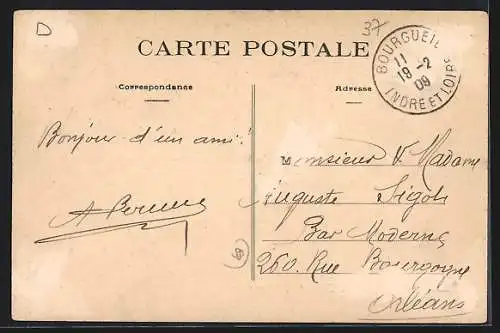 D
37
CARTE POSTALE
BOURGUEIL
11
19 -2
09
INDRE ET LOIRE
Correspondance
Adresse
Bonjour d'un ami!
Monsieur & Madame
Auguste
Bar Moderne
260 Rue Bourgogne
Orléans